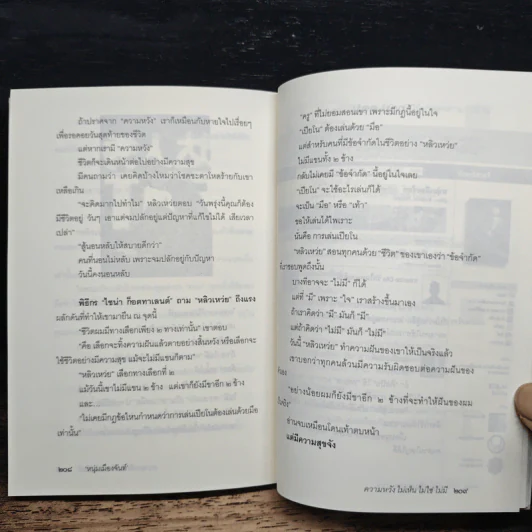 ถ้าปราศจาก "ความหวัง" เราก็เหมือนกับหายใจไปเรื่อยๆ
เพื่อรอคอยวันสุดท้ายของชีวิต
แต่หากเรามี "ความหวัง"
ชีวิตก็จะเดินหน้าต่อไปอย่างมีความสุข
มีคนถามว่า เคยคิดบ้างไหมว่าโชคชะตาโหดร้ายกับเขา
เหลือเกิน
"จะคิดมากไปทำไม" หลิวเหว่ยตอบ "วันพรุ่งนี้คุณก็ต้อง
มีชีวิตอยู่ วันๆ เอาแต่จมปลักอยู่แต่ปัญหาที่แก้ไขไม่ได้ เสียเวลา
เปล่า"
"สู้นอนหลับให้สบายดีกว่า"
คนที่นอนไม่หลับ เพราะจมปลักอยู่กับปัญหา
วันนี้คงนอนหลับ
พิธีกร "ไชน่า ก็อตทาเลนต์" ถาม "หลิวเหว่ย" ถึงแรง
ผลักดันที่ทำให้เขามายืน ณ จุดนี้
"ชีวิตผมมีทางเลือกเพียง ๒ ทางเท่านั้น" เขาตอบ
"คือ เลือกจะทิ้งความฝันแล้วตายอย่างสิ้นหวัง หรือเลือกจะ
ใช้ชีวิตอย่างมีความสุข แม้จะไม่มีแขนก็ตาม"
"หลิวเหว่ย" เลือกทางเลือกที่ ๒
แม้วันนี้เขาไม่มีแขน ๒ ข้าง แต่เขาก็ยังมีขาอีก ๒ ข้าง
และ
"ไม่เคยมีกฎข้อไหนกำหนดว่าการเล่นเปียโนต้องเล่นด้วยมือ
เท่านั้น"
๒๐๘ 'หนุ่มเมืองจันท์'
"ครู" ที่ไม่ยอมสอนเขา เพราะมีกฎนี้อยู่ในใจ
"เปียโน" ต้องเล่นด้วย "มือ"
แต่สำหรับคนที่มีข้อจำกัดในชีวิตอย่าง "หลิวเหว่ย"
ไม่มีแขนทั้ง ๒ ข้าง
กลับไม่เคยมี "ข้อจำกัด" นี้อยู่ในใจเลย
"เปียโน" จะใช้อะไรเล่นก็ได้
จะเป็น "มือ" หรือ "เท้า"
ขอให้เล่นได้ไพเราะ
นั่นคือ การเล่นเปียโน
"หลิวเหว่ย" สอนทุกคนด้วย "ชีวิต" ของเขาเองว่า "ข้อจำกัด"
ที่เราชอบพูดถึงนั้น
บางทีอาจจะ "ไม่มี" ก็ได้
แต่ที่ "มี" เพราะ "ใจ" เราสร้างขึ้นมาเอง
ถ้าเราคิดว่า "มี" มันก็ "มี"
แต่ถ้าคิดว่า "ไม่มี" มันก็ "ไม่มี"
วันนี้ "หลิวเหว่ย" ทำความฝันของเขาให้เป็นจริงแล้ว
เขาบอกว่าทุกคนล้วนมีความรับผิดชอบต่อความฝันของ
"อย่างน้อยผมก็ยังมีขาอีก ๒ ข้างที่จะทำให้ฝันของผม
อ่านจบเหมือนโดนเท้าตบหน้า
แต่มีความสุขจัง
ความหวัง ไม่เห็น ไม่ใช่ ไม่มี ๒๐๙